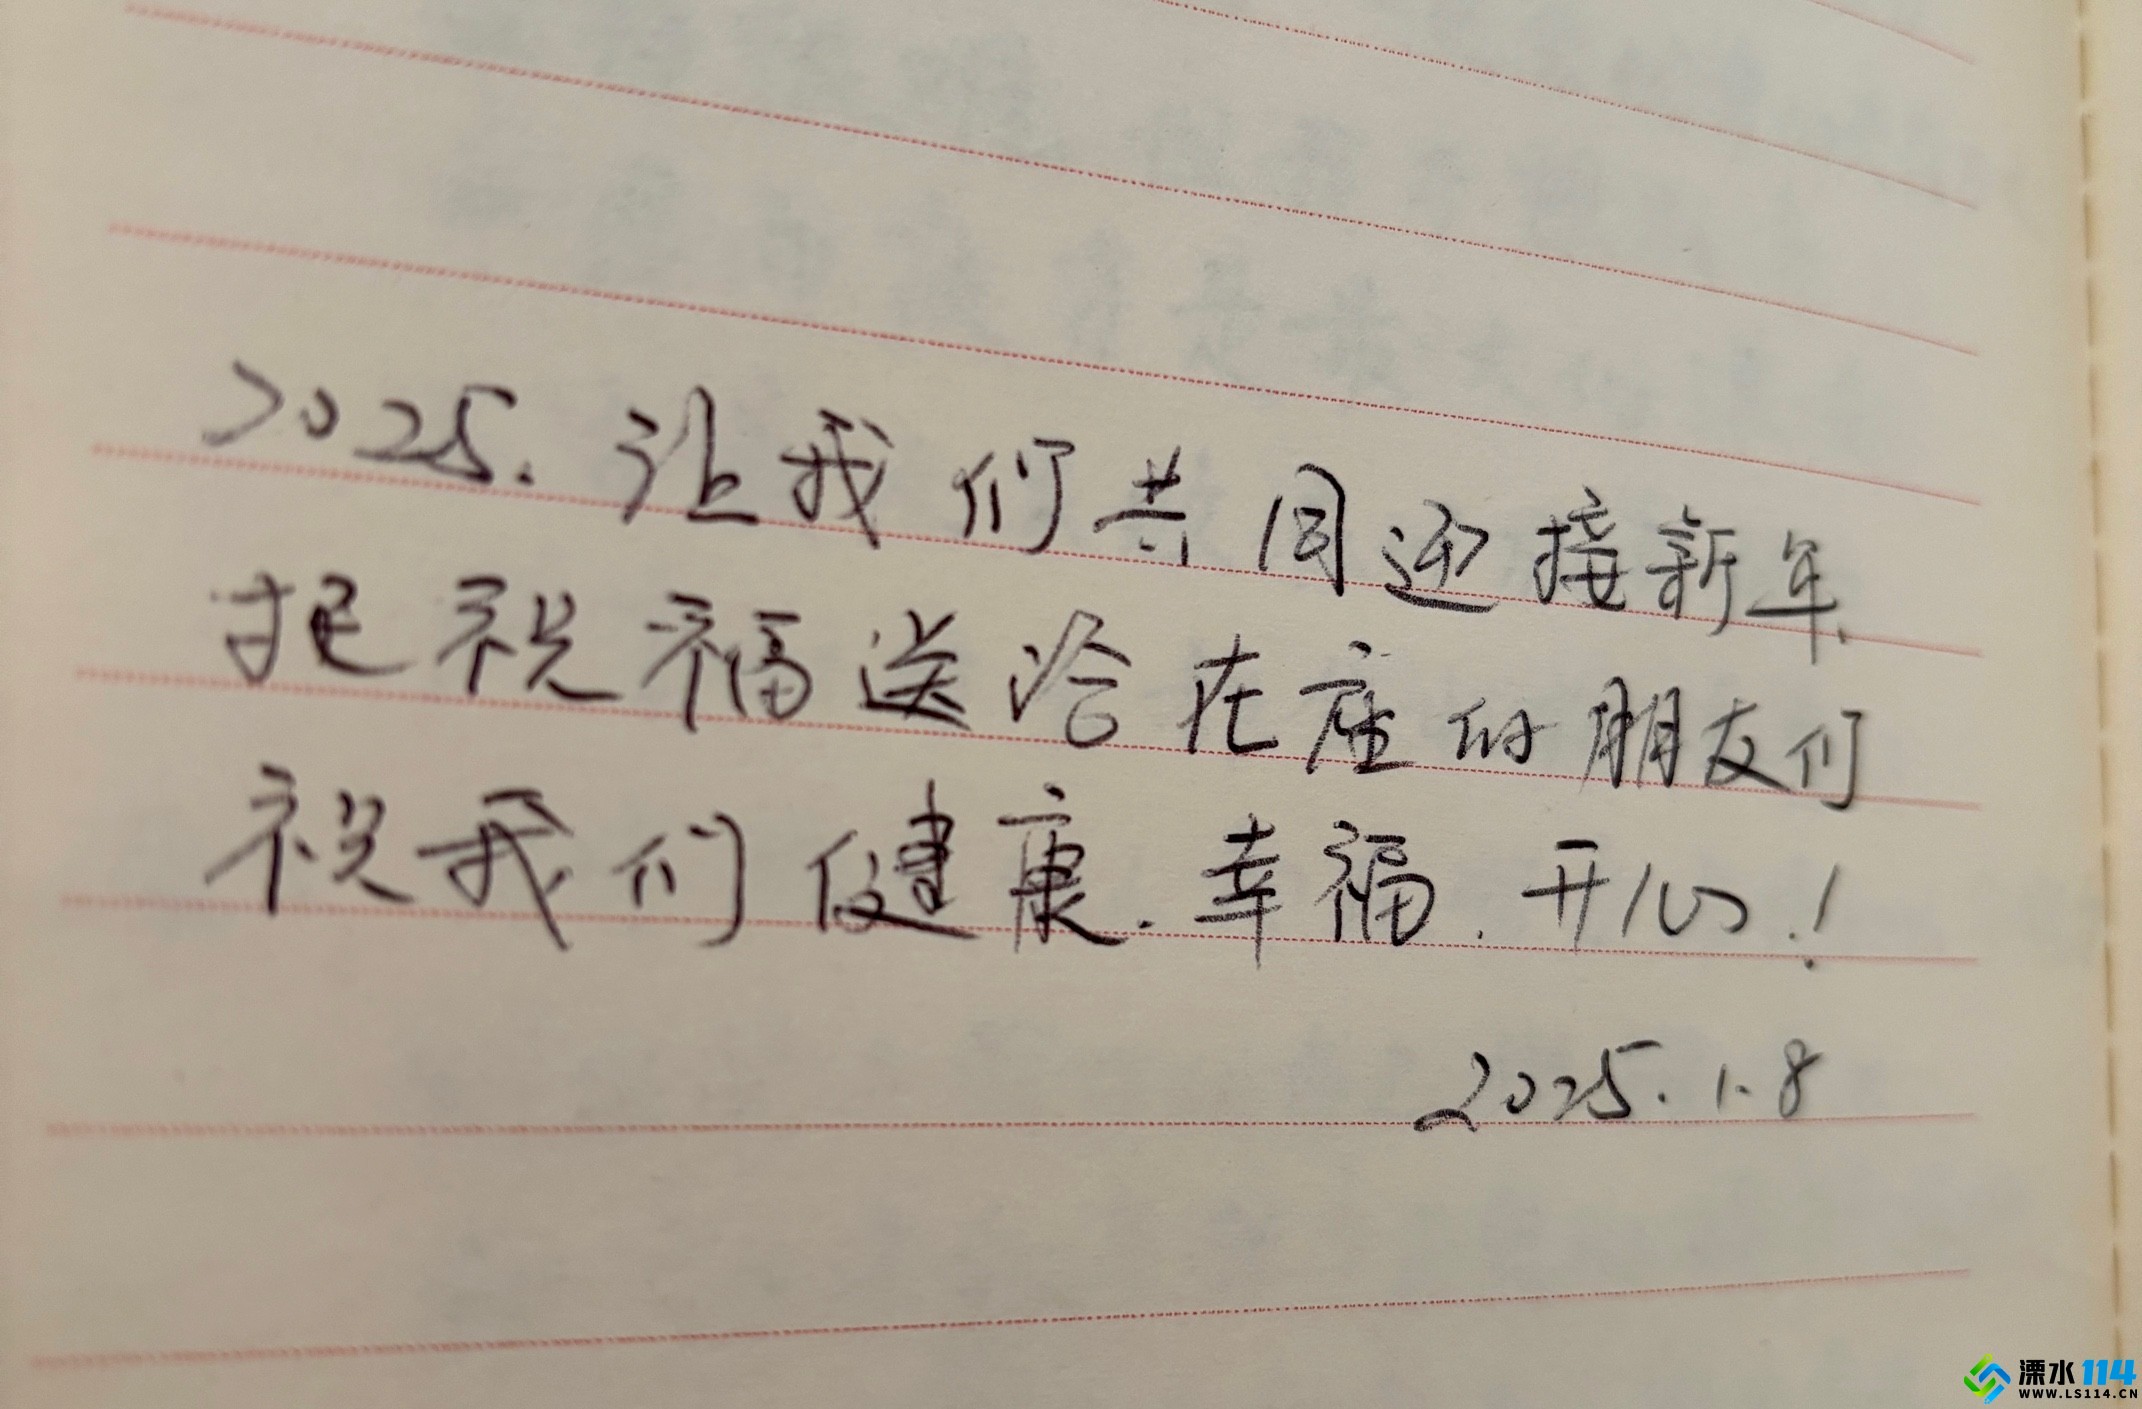 2025.让我们共同迎接新年.
把祝福送给在座的朋友们
祝我们健康.幸福.开心!
2025.1.8
溧水114
WWW.LS114.CN